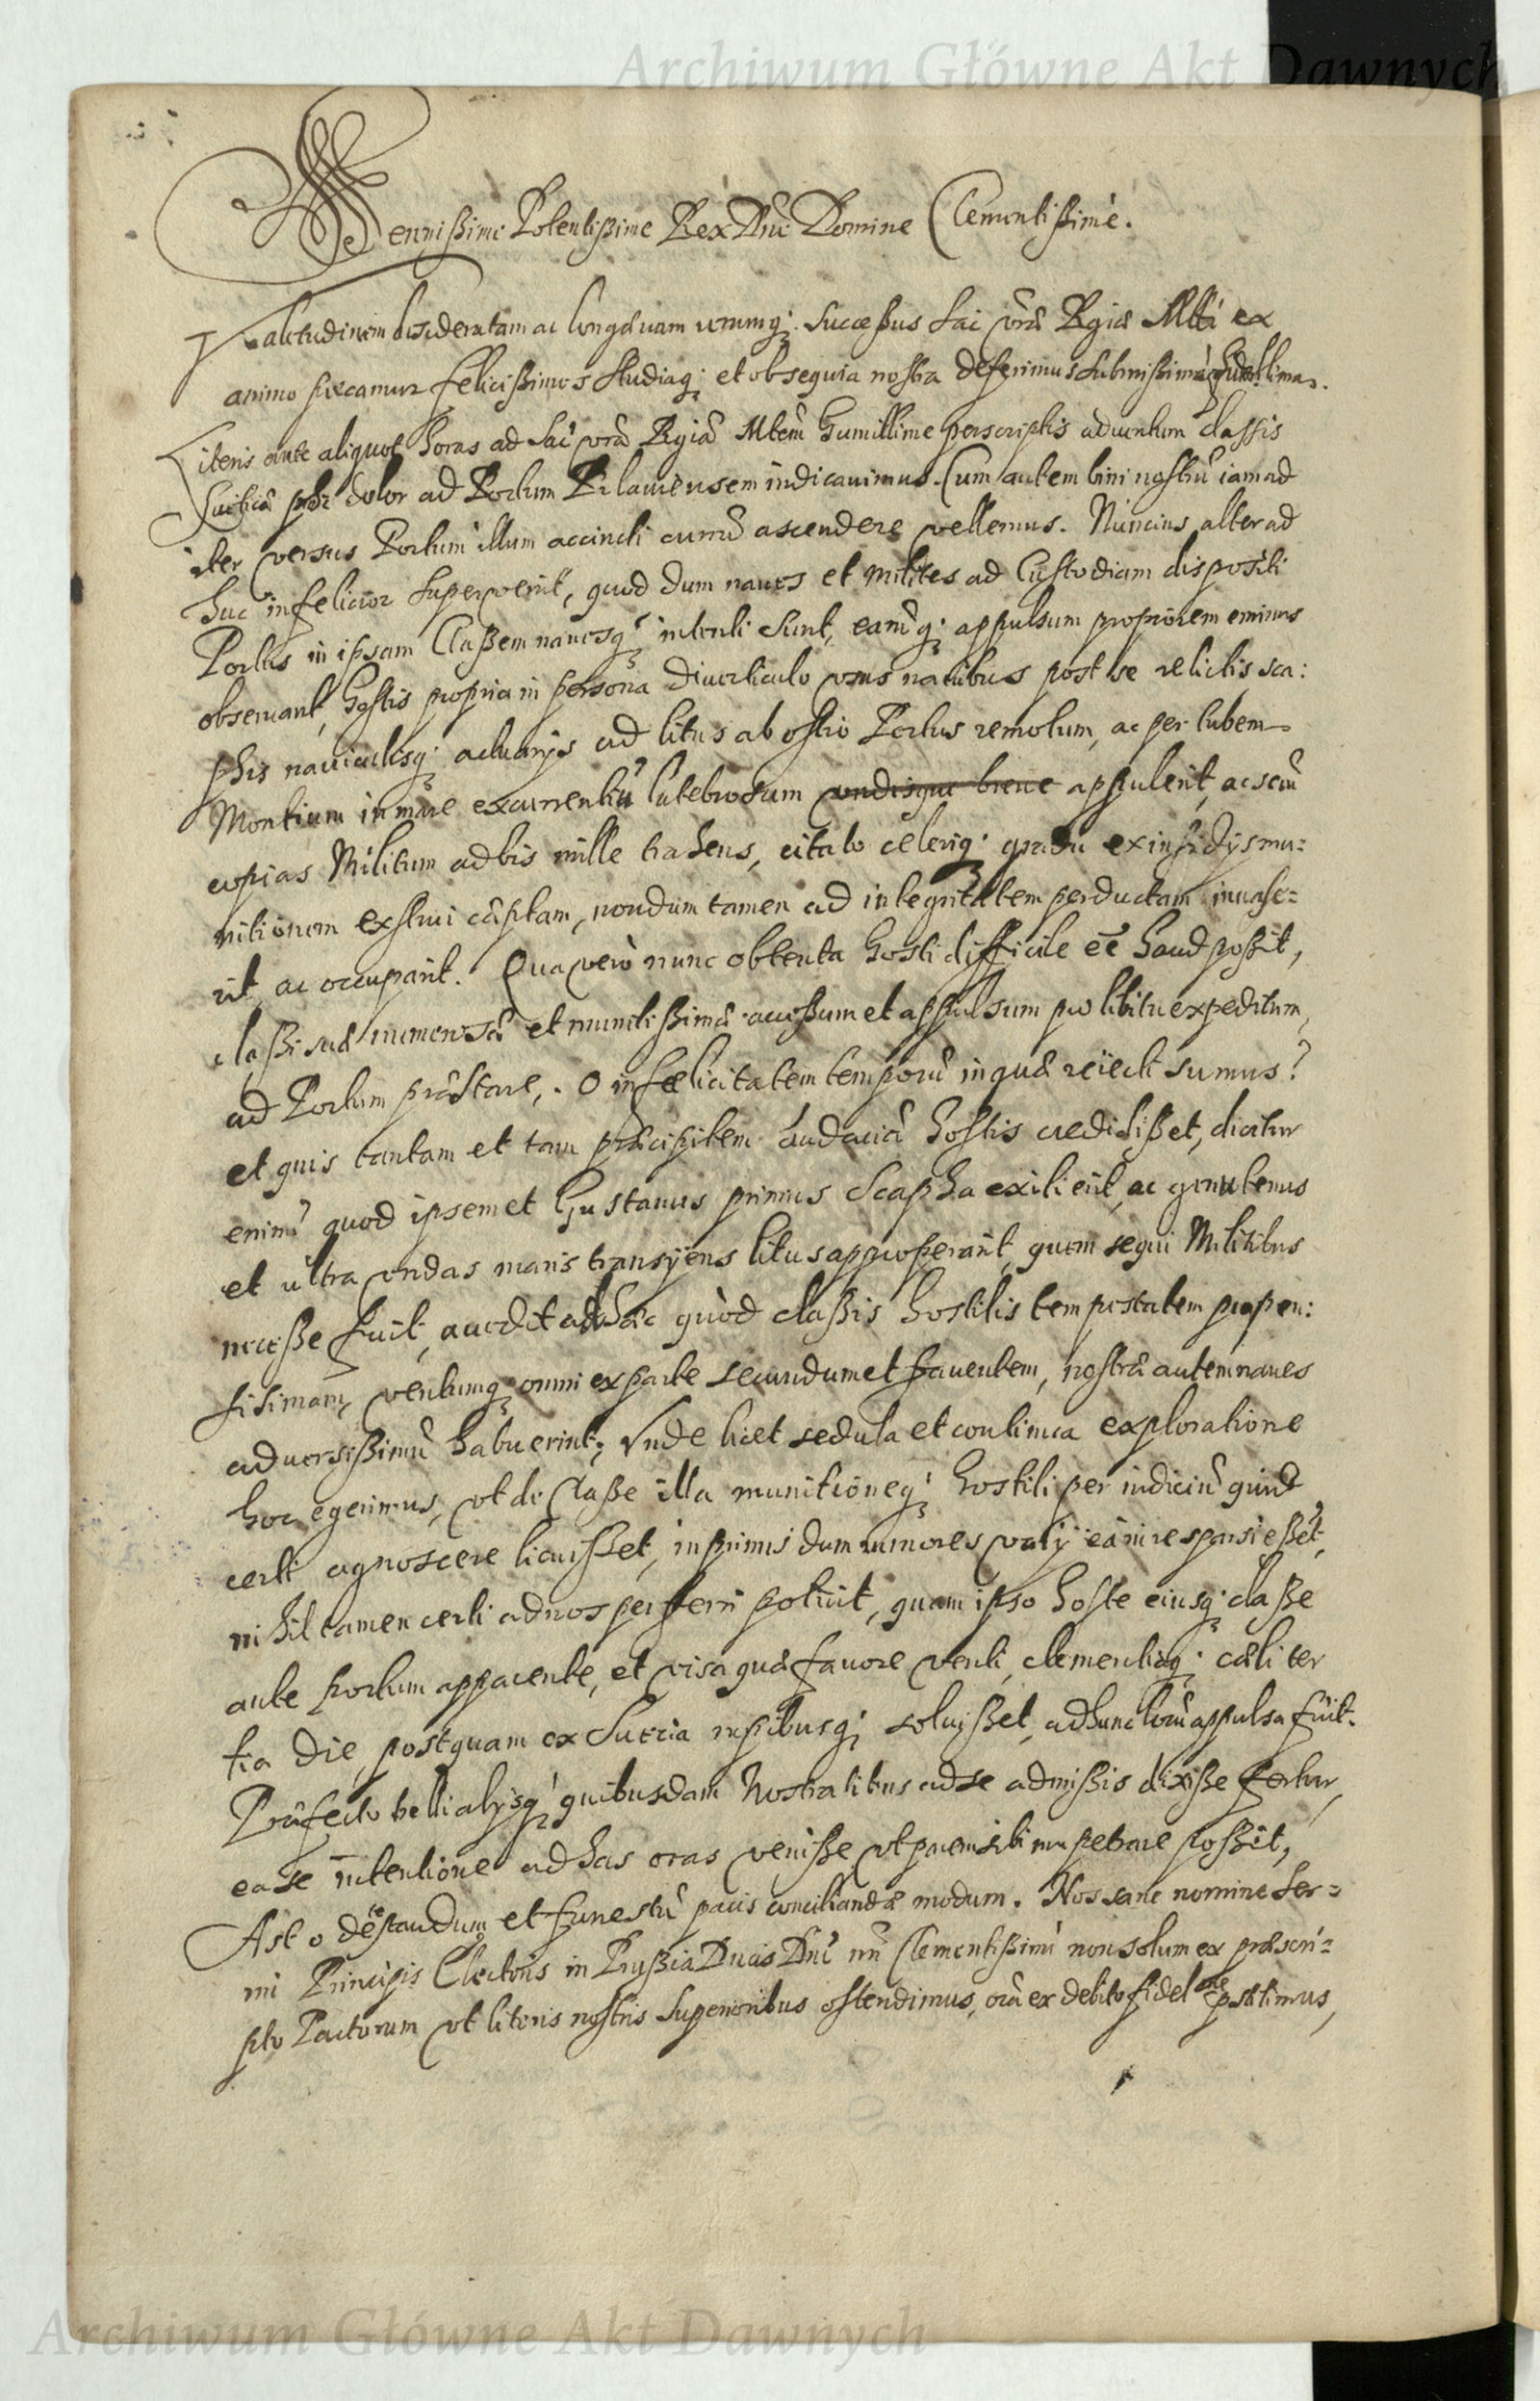 Archiwum Główne Akt Dawnych
Serenissime Potentissime Rex Dne Domine Clementissime.
Valetudinem desideratam ac longævam rerumq; successus Sac vræ Rgiæ Mtti ex
animo præcamur felicissimos studiaq; et obsequia nostra deferimus submissima
Literis ante aliquot horas ad Sac vrã Rgiã Mtem humillime perscriptis aduentum classis
Sueticæ proh dolor ad Portum Pilauiensem indicauimus. Cum autem bini nostrũ iam ad
iter versus Portum illum accincti currũ ascendere vellemus. Nuncius alter ad
huc infelicior superuenit, quod dum naues et milites ad Custodiam dispositi
Portus in ipsam Classem nauesq; intenti sunt, eamq; appulsum propiorem eminus
obseruant, Hostis propria in persona diuerticulo vsus nauibus post se relictis sca:
phis nauiculisq; actuarijs ad litus ab ostio Portus remotum, ac per iubem
Montium in mare excurrentiũ latebrosum vndisque breue appulerit, ac secũ
copias Militum ad bis mille trahens, citato celeriq; gradu ex insidijs mu:
nitionem exstrui cæptam, nondum tamen ad integritatem perductam inuase=
rit, ac occuparit. Qua verò nunc obtenta hosti difficile eē haud possit,
classi suæ immensæ et munitissimæ accessum et appulsum pro libitu expeditum,
ad Portum præstare. O infælicitatem temporũ in quæ reiecti sumus?
et quis tantam et tam præcipitem audaciã hostis credidisset, dicitur
enim quod ipsemet Gustauus primus scapha exilierit, ac genutenus
et ultra vndas maris transiens litus approperarit, quem sequi Militibus
necesse fuit, accedit ad hæc quòd classis hostilis tempestatem propen:
sisimam, ventumq; omni ex parte secundum et fauentem, nostræ autem naues
aduersissimũ habuerint; Vnde licet sedula et continua exploratione
hoc egerimus, vt de Classe illa munitioneq; hostili per indiciũ quid
certi agnoscere licuisset, inprimis dum rumores varij eã in re sparsi essēt,
nihil tamen certi ad nos perferri potuit, quam ipso hoste eiusq; classe
ante portum apparente, et visa quæ fauore venti, clementiaq; cæli ter
tia die, postquam ex Suecia rupibusq; soluisset, ad hunc locũ appulsa fuit.
Præfecto belli alijsq; quibusdam Nostratibus ad se admissis dixisse fertur,
ea se intentione ad has oras venisse, vt pacem sibi impetrare possit,
Ast o detestandum et funestũ pacis conciliandæ modum. Nos sane nomine Ser=
mi Principis Electoris in Prussia Ducis Dni nri Clementissimi non solum ex præscri=
pto Pactorum vt literis nostris superioribus ostendimus, verũ ex debito fidel præstitimus,
Archiwum Główne Akt Dawnych